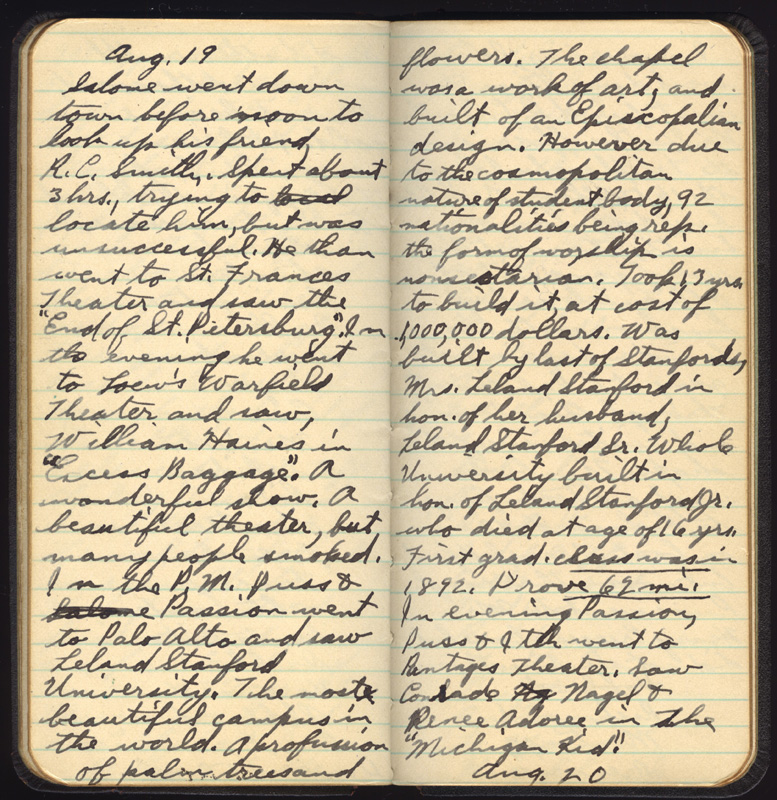 Aug. 19
Salome went down
town before noon to
look up his friend,
R.C. Smith. Spent about
3 hrs., trying to local
locate him, but was
unsuccessful. He than
went to St. Frances
Theater and saw the
"End of St. Petersburg". In
the evening he went
to Loew's Warfield
Theater and saw,
William Haines in
"Excess Baggage". A
wonderful show. A
beautiful theater, but
many people smoked.
In the P.M. Puss &
Salome Passion went
to Palo Alto and saw
Leland Stanford
University. The most
beautiful campus in
the world. A profusion
of palm trees and
flowers. The chapel
was a work of art, and
built of an Episcopalian
design. However due
to the cosmopolitan
nature of student body, 92
nationalities being rep.
the form of worship is
nonsectarian. Took 13 yrs.
to build it, at cost of
1,000,000 dollars. Was
built by last of Stanfords,
Mrs. Leland Stanford in
hon. of her husband,
Leland Stanford Sr. Whole
University built in
hon. of Leland Stanford Jr.
who died at age of 16 yrs.
First grad. class was in
1892. Drove 62 mi.
In evening Passion,
Puss & Ith went to
Pantages Theater. Saw
Conrade Nagel &
Renee Adoree in the
"Michigan Kid".
Aug. 20